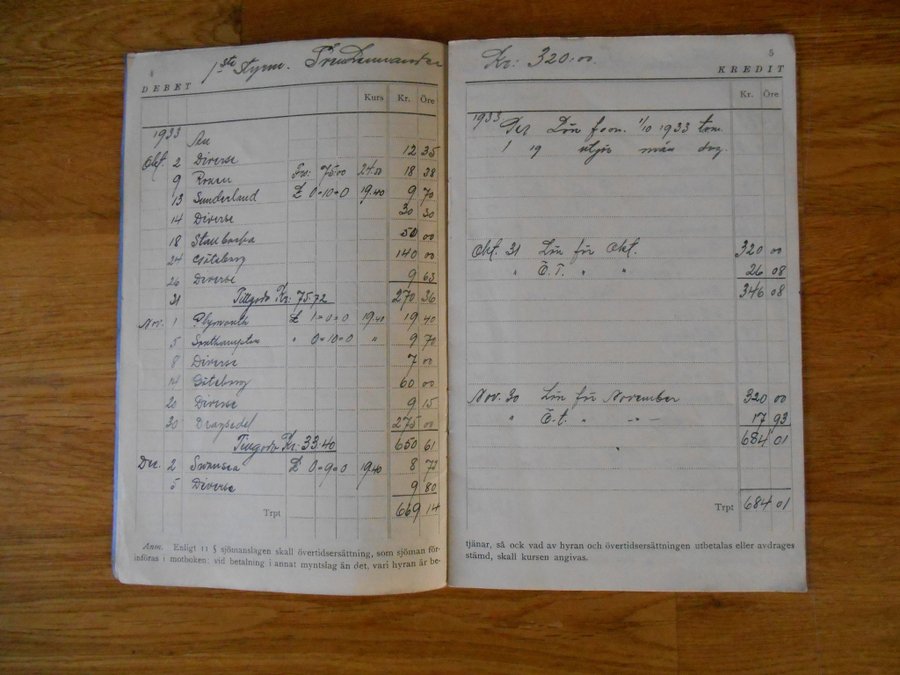 4
1ste Styrm.
DEBET
Kurs Kr. Öre
1933
Okt. 2 Diverse 12 35
9 Rouen Frc: 75.00 24.50 18 38
13 Sunderland £ 0-10-0 19.40 9 70
14 Diverse 30 30
18 50 00
24 Göteborg 140 00
26 Diverse 9 63
31 Tillgodo Kr: 75.72 270 36
Nov. 1 Plymouth £ 1-0-0 19.40 19 40
5 Southampton " 0-10-0 " 9 70
8 Diverse 7 00
14 Göteborg 60 00
20 Diverse 9 15
30 Dragsedel 275 00
Tillgodo Kr: 33.40 650 61
Dec. 2 Swansea £ 0-9-0 19.40 8 73
5 Diverse 9 80
Trpt 669 14
Anm. Enligt 11 § sjömanslagen skall övertidsersättning, som sjöman för-
införas i motboken; vid betalning i annat myntslag än det, vari hyran är be-
Kr: 320.00
5
KREDIT
Kr. Öre
1933
Lön from. 1/10 1933 tom.
1 19 utgör mån dag.
Okt. 31 Lön för Okt. 320 00
" Ö.T. " " 26 08
346 08
Nov. 30 Lön för November 320 00
" Ö.t. " " 17 93
684 01
Trpt 684 01
tjänar, så ock vad av hyran och övertidsersättningen utbetalas eller avdrages
stämd, skall kursen angivas.